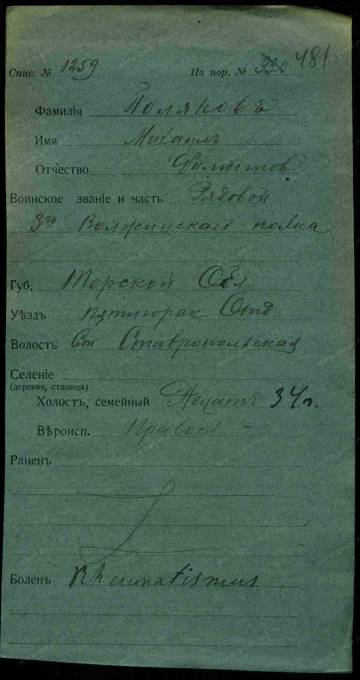 Спис. № 1259 По пор. № 330 481
Фамилія Поляковъ
Имя Михаилъ
Отчество Филиппов
Воинское званіе и часть Рядовой
3го Волжскаго полка
Губ. Терской Обл
Уѣздъ Пятигорск Отд
Волость Ст Ставропольская
Селеніе
(деревня, станица)
Холостъ, семейный Женатъ 34 г.
Вѣроисп. Правосл -
Раненъ
Боленъ Rheumatismus